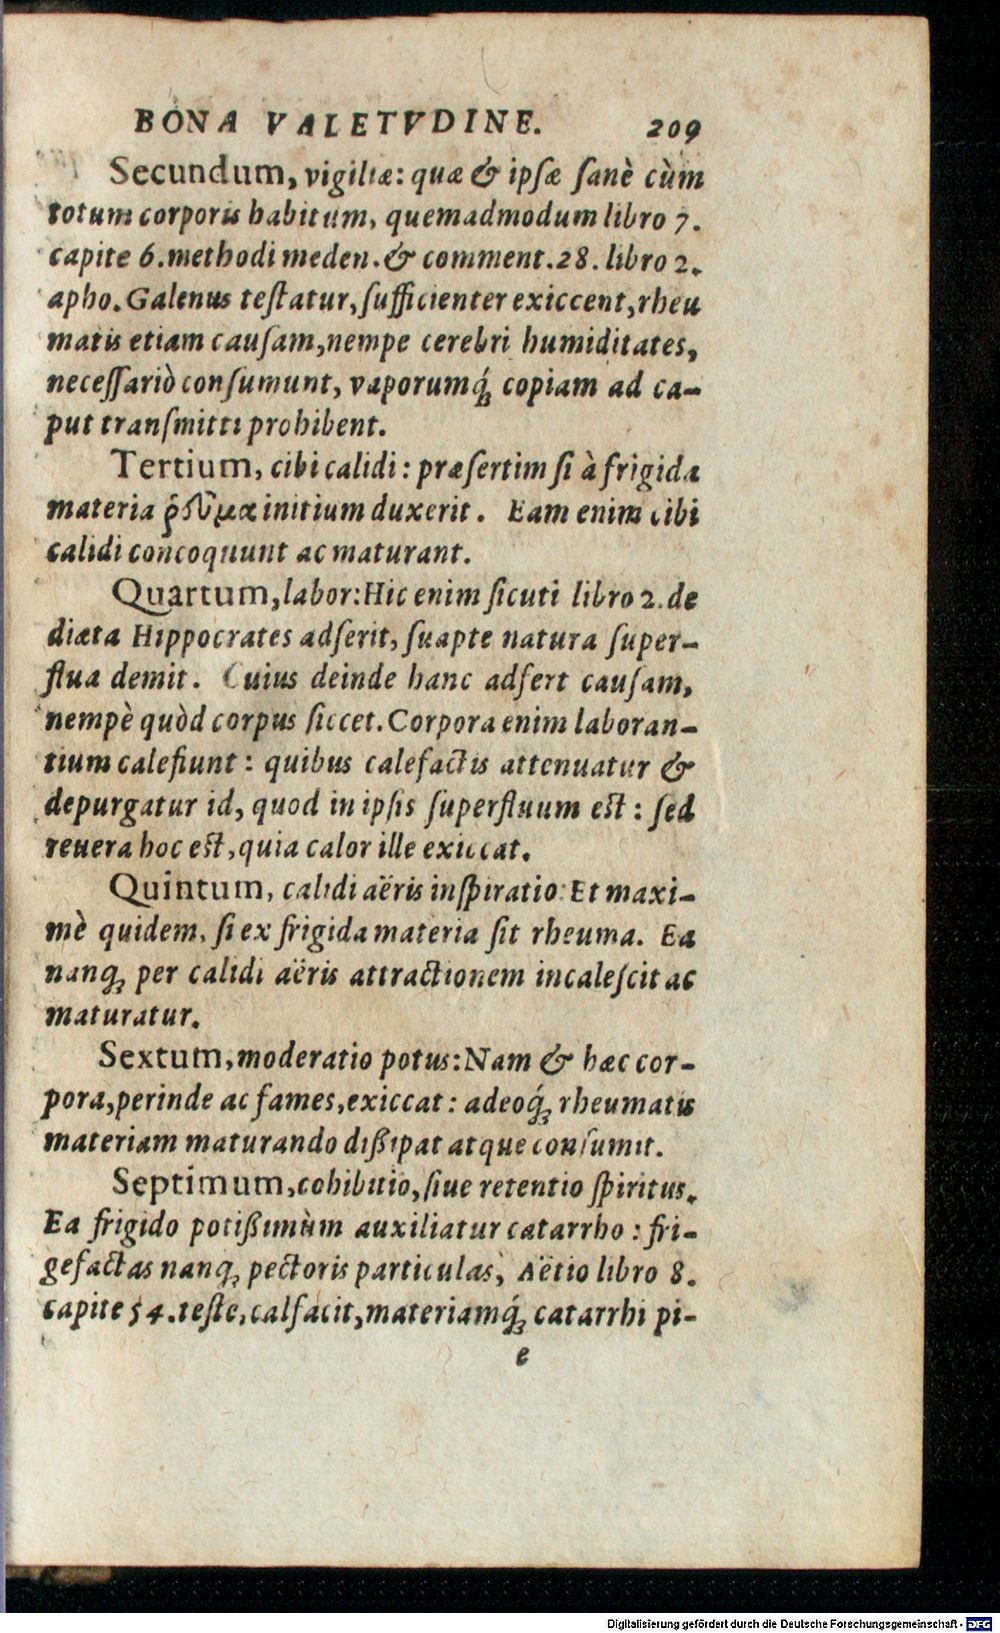 BONA VALETVDINE. 209
Secundum, vigiliæ: quæ & ipſæ ſanè cùm
totum corporis habitum, quemadmodum libro 7.
capite 6. methodi meden. & comment. 28. libro 2.
apho. Galenus teſtatur, ſufficienter exiccent, rheu
matis etiam cauſam, nempe cerebri humiditates,
neceſſariò conſumunt, vaporumq́ꝫ copiam ad ca-
put tranſmitti prohibent.
Tertium, cibi calidi: præſertim ſi à frigida
materia ῥεῦμα initium duxerit. Eam enim cibi
calidi concoquunt ac maturant.
Quartum, labor: Hic enim ſicuti libro 2. de
diæta Hippocrates adſerit, ſuapte natura ſuper-
flua demit. Cuius deinde hanc adfert cauſam,
nempè quòd corpus ſiccet. Corpora enim laboran-
tium calefiunt: quibus calefactis attenuatur &
depurgatur id, quod in ipſis ſuperfluum eſt: ſed
reuera hoc eſt, quia calor ille exiccat.
Quintum, calidi aëris inſpiratio: Et maxi-
mè quidem, ſi ex frigida materia ſit rheuma. Ea
nanqꝫ per calidi aëris attractionem incaleſcit ac
maturatur.
Sextum, moderatio potus: Nam & hæc cor-
pora, perinde ac fames, exiccat: adeoq́ꝫ rheumatis
materiam maturando diſsipat atque conſumit.
Septimum, cohibitio, ſiue retentio ſpiritus.
Ea frigido potiſsimùm auxiliatur catarrho: fri-
gefactas nanqꝫ pectoris particulas, Aëtio libro 8.
capite 54. teſte, calfacit, materiamq́ꝫ catarrhi pi-
e
Digitalisierung gefördert durch die Deutsche Forschungsgemeinschaft - DFG